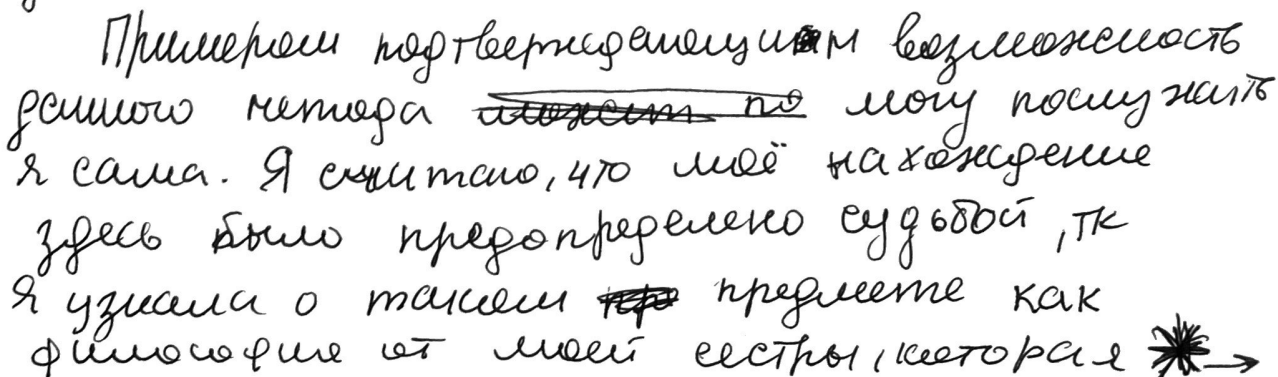 Примером подтверждающим возможность
данного метода могу послужить
я сама. Я считаю, что моё нахождение
здесь было предопределено судьбой, тк
я узнала о таком предмете как
философия от моей сестры, которая →